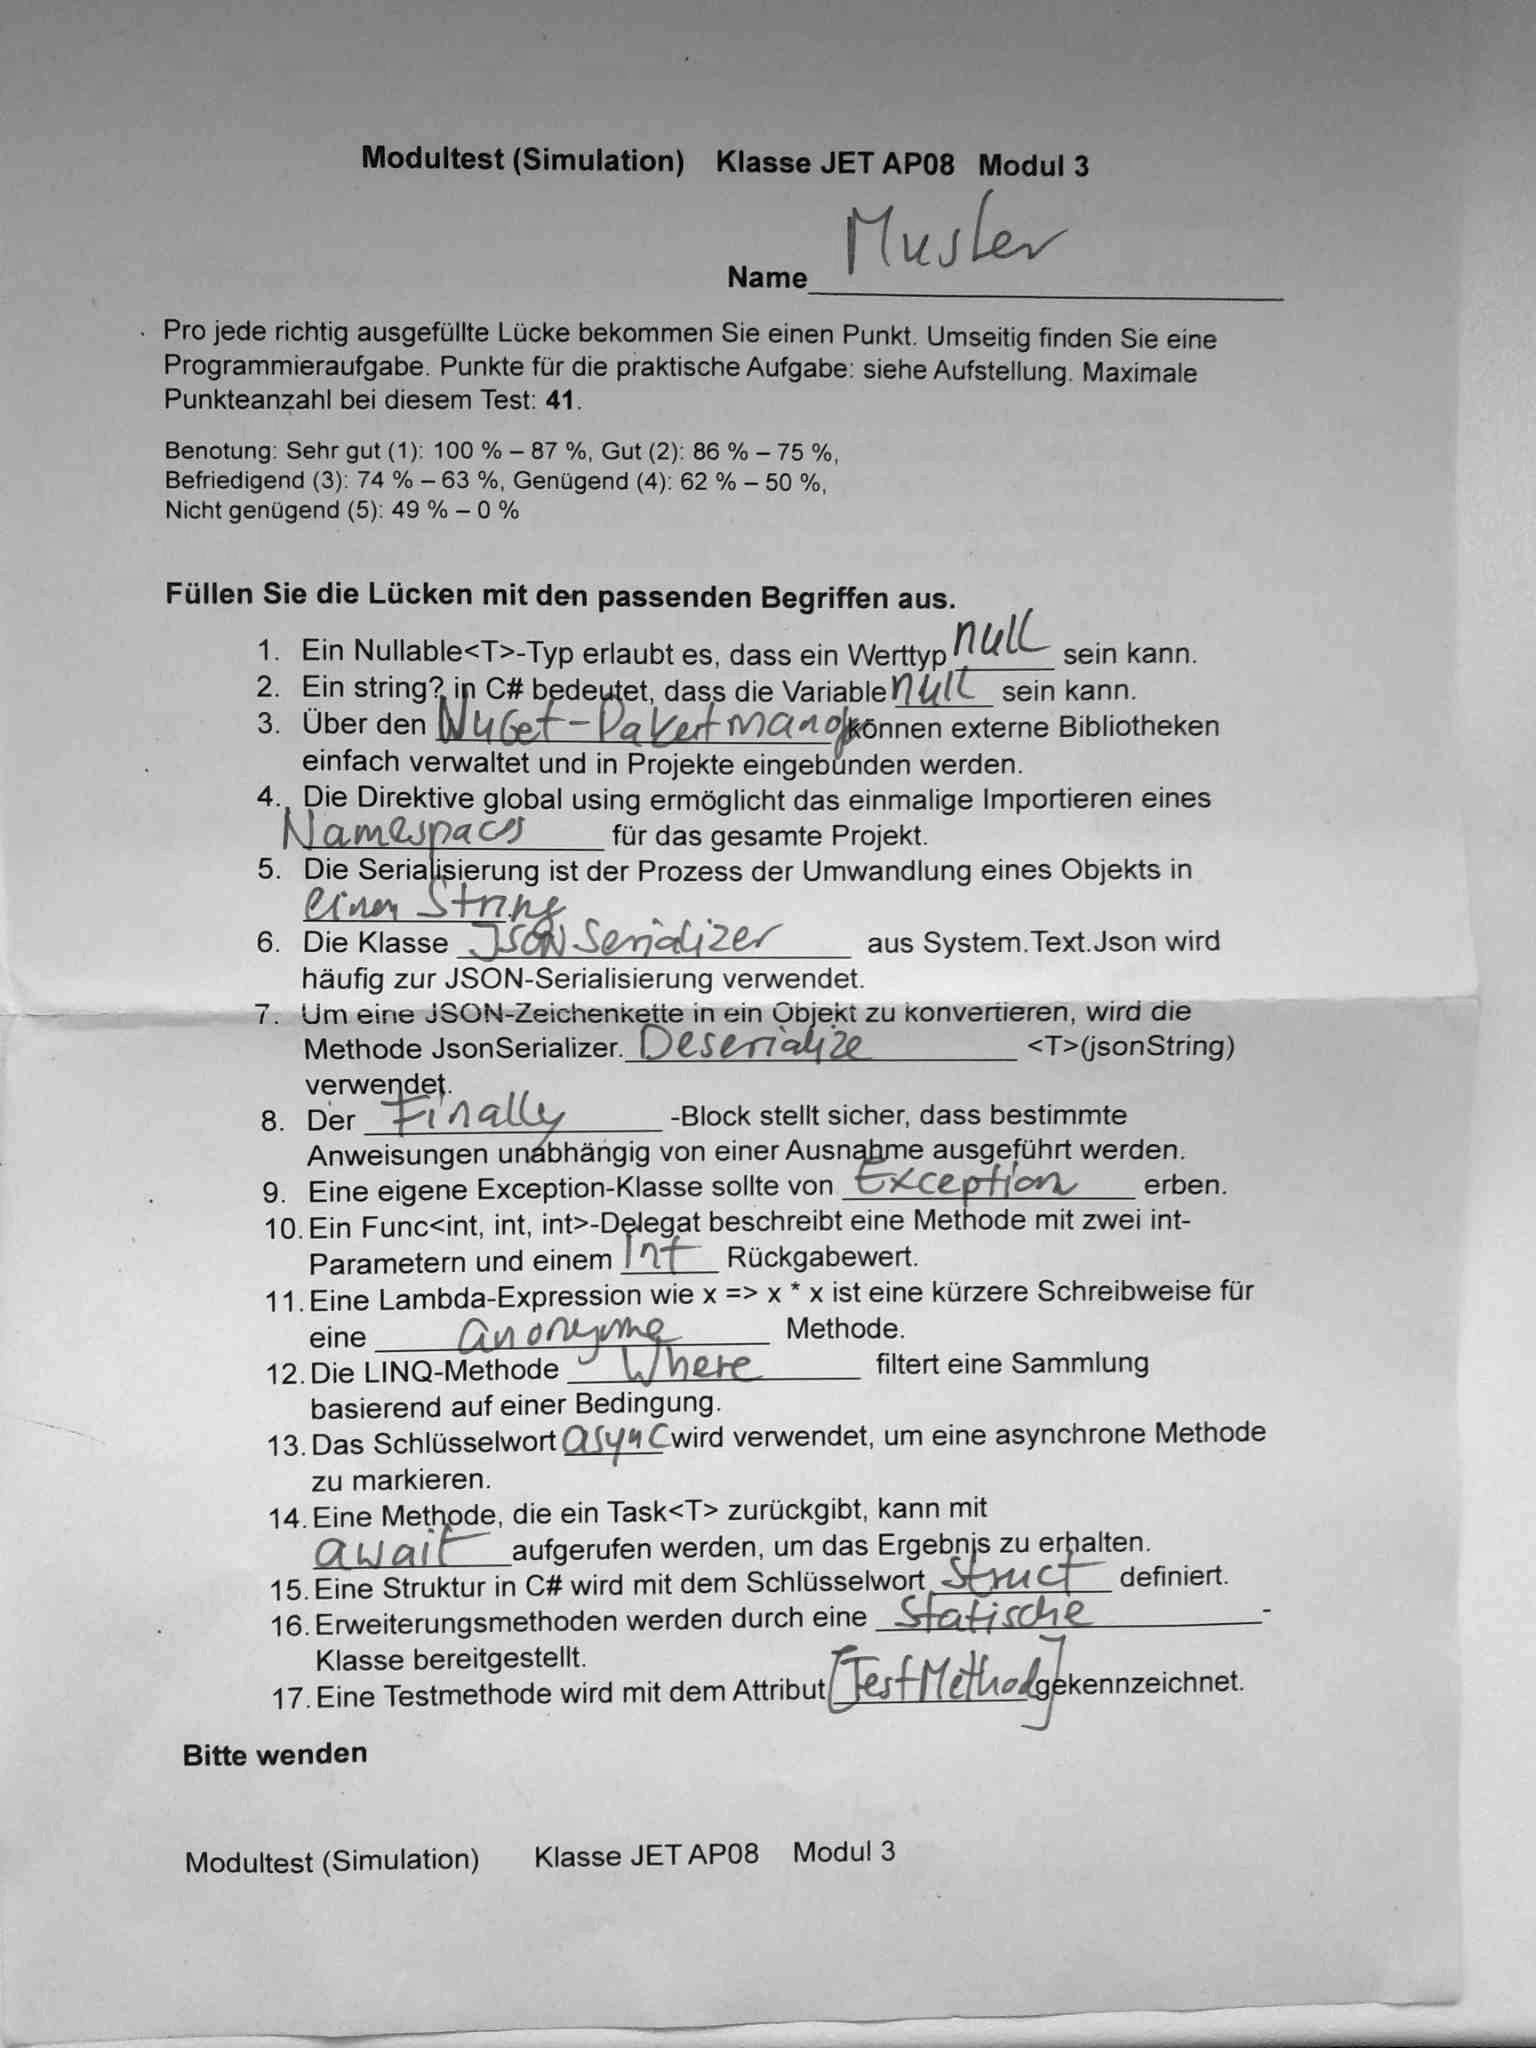 Modultest (Simulation) Klasse JET AP08 Modul 3
Name Muster
Pro jede richtig ausgefüllte Lücke bekommen Sie einen Punkt. Umseitig finden Sie eine
Programmieraufgabe. Punkte für die praktische Aufgabe: siehe Aufstellung. Maximale
Punkteanzahl bei diesem Test: 41.
Benotung: Sehr gut (1): 100 % – 87 %, Gut (2): 86 % – 75 %,
Befriedigend (3): 74 % – 63 %, Genügend (4): 62 % – 50 %,
Nicht genügend (5): 49 % – 0 %
Füllen Sie die Lücken mit den passenden Begriffen aus.
1. Ein Nullable<T>-Typ erlaubt es, dass ein Werttyp null sein kann.
2. Ein string? in C# bedeutet, dass die Variable null sein kann.
3. Über den NuGet-Paketmanag können externe Bibliotheken
einfach verwaltet und in Projekte eingebunden werden.
4. Die Direktive global using ermöglicht das einmalige Importieren eines
Namespaces für das gesamte Projekt.
5. Die Serialisierung ist der Prozess der Umwandlung eines Objekts in
einen String.
6. Die Klasse JSON Serializer aus System.Text.Json wird
häufig zur JSON-Serialisierung verwendet.
7. Um eine JSON-Zeichenkette in ein Objekt zu konvertieren, wird die
Methode JsonSerializer. Deserialize <T>(jsonString)
verwendet.
8. Der Finally -Block stellt sicher, dass bestimmte
Anweisungen unabhängig von einer Ausnahme ausgeführt werden.
9. Eine eigene Exception-Klasse sollte von Exception erben.
10. Ein Func<int, int, int>-Delegat beschreibt eine Methode mit zwei int-
Parametern und einem Int Rückgabewert.
11. Eine Lambda-Expression wie x => x * x ist eine kürzere Schreibweise für
eine anonyme Methode.
12. Die LINQ-Methode Where filtert eine Sammlung
basierend auf einer Bedingung.
13. Das Schlüsselwort async wird verwendet, um eine asynchrone Methode
zu markieren.
14. Eine Methode, die ein Task<T> zurückgibt, kann mit
await aufgerufen werden, um das Ergebnis zu erhalten.
15. Eine Struktur in C# wird mit dem Schlüsselwort struct definiert.
16. Erweiterungsmethoden werden durch eine statische -
Klasse bereitgestellt.
17. Eine Testmethode wird mit dem Attribut [TestMethod] gekennzeichnet.
Bitte wenden
Modultest (Simulation) Klasse JET AP08 Modul 3